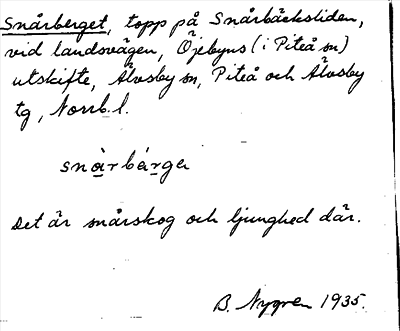 Snårberget, topp på Snårbäcksliden,
vid landsvägen, Öjebyns (i Piteå sn)
utskifte, Älvsby sn, Piteå och Älvsby
tg, Norrb. l.
snàrbárga
Det är snårskog och ljunghed där.
B. Nygren 1935.